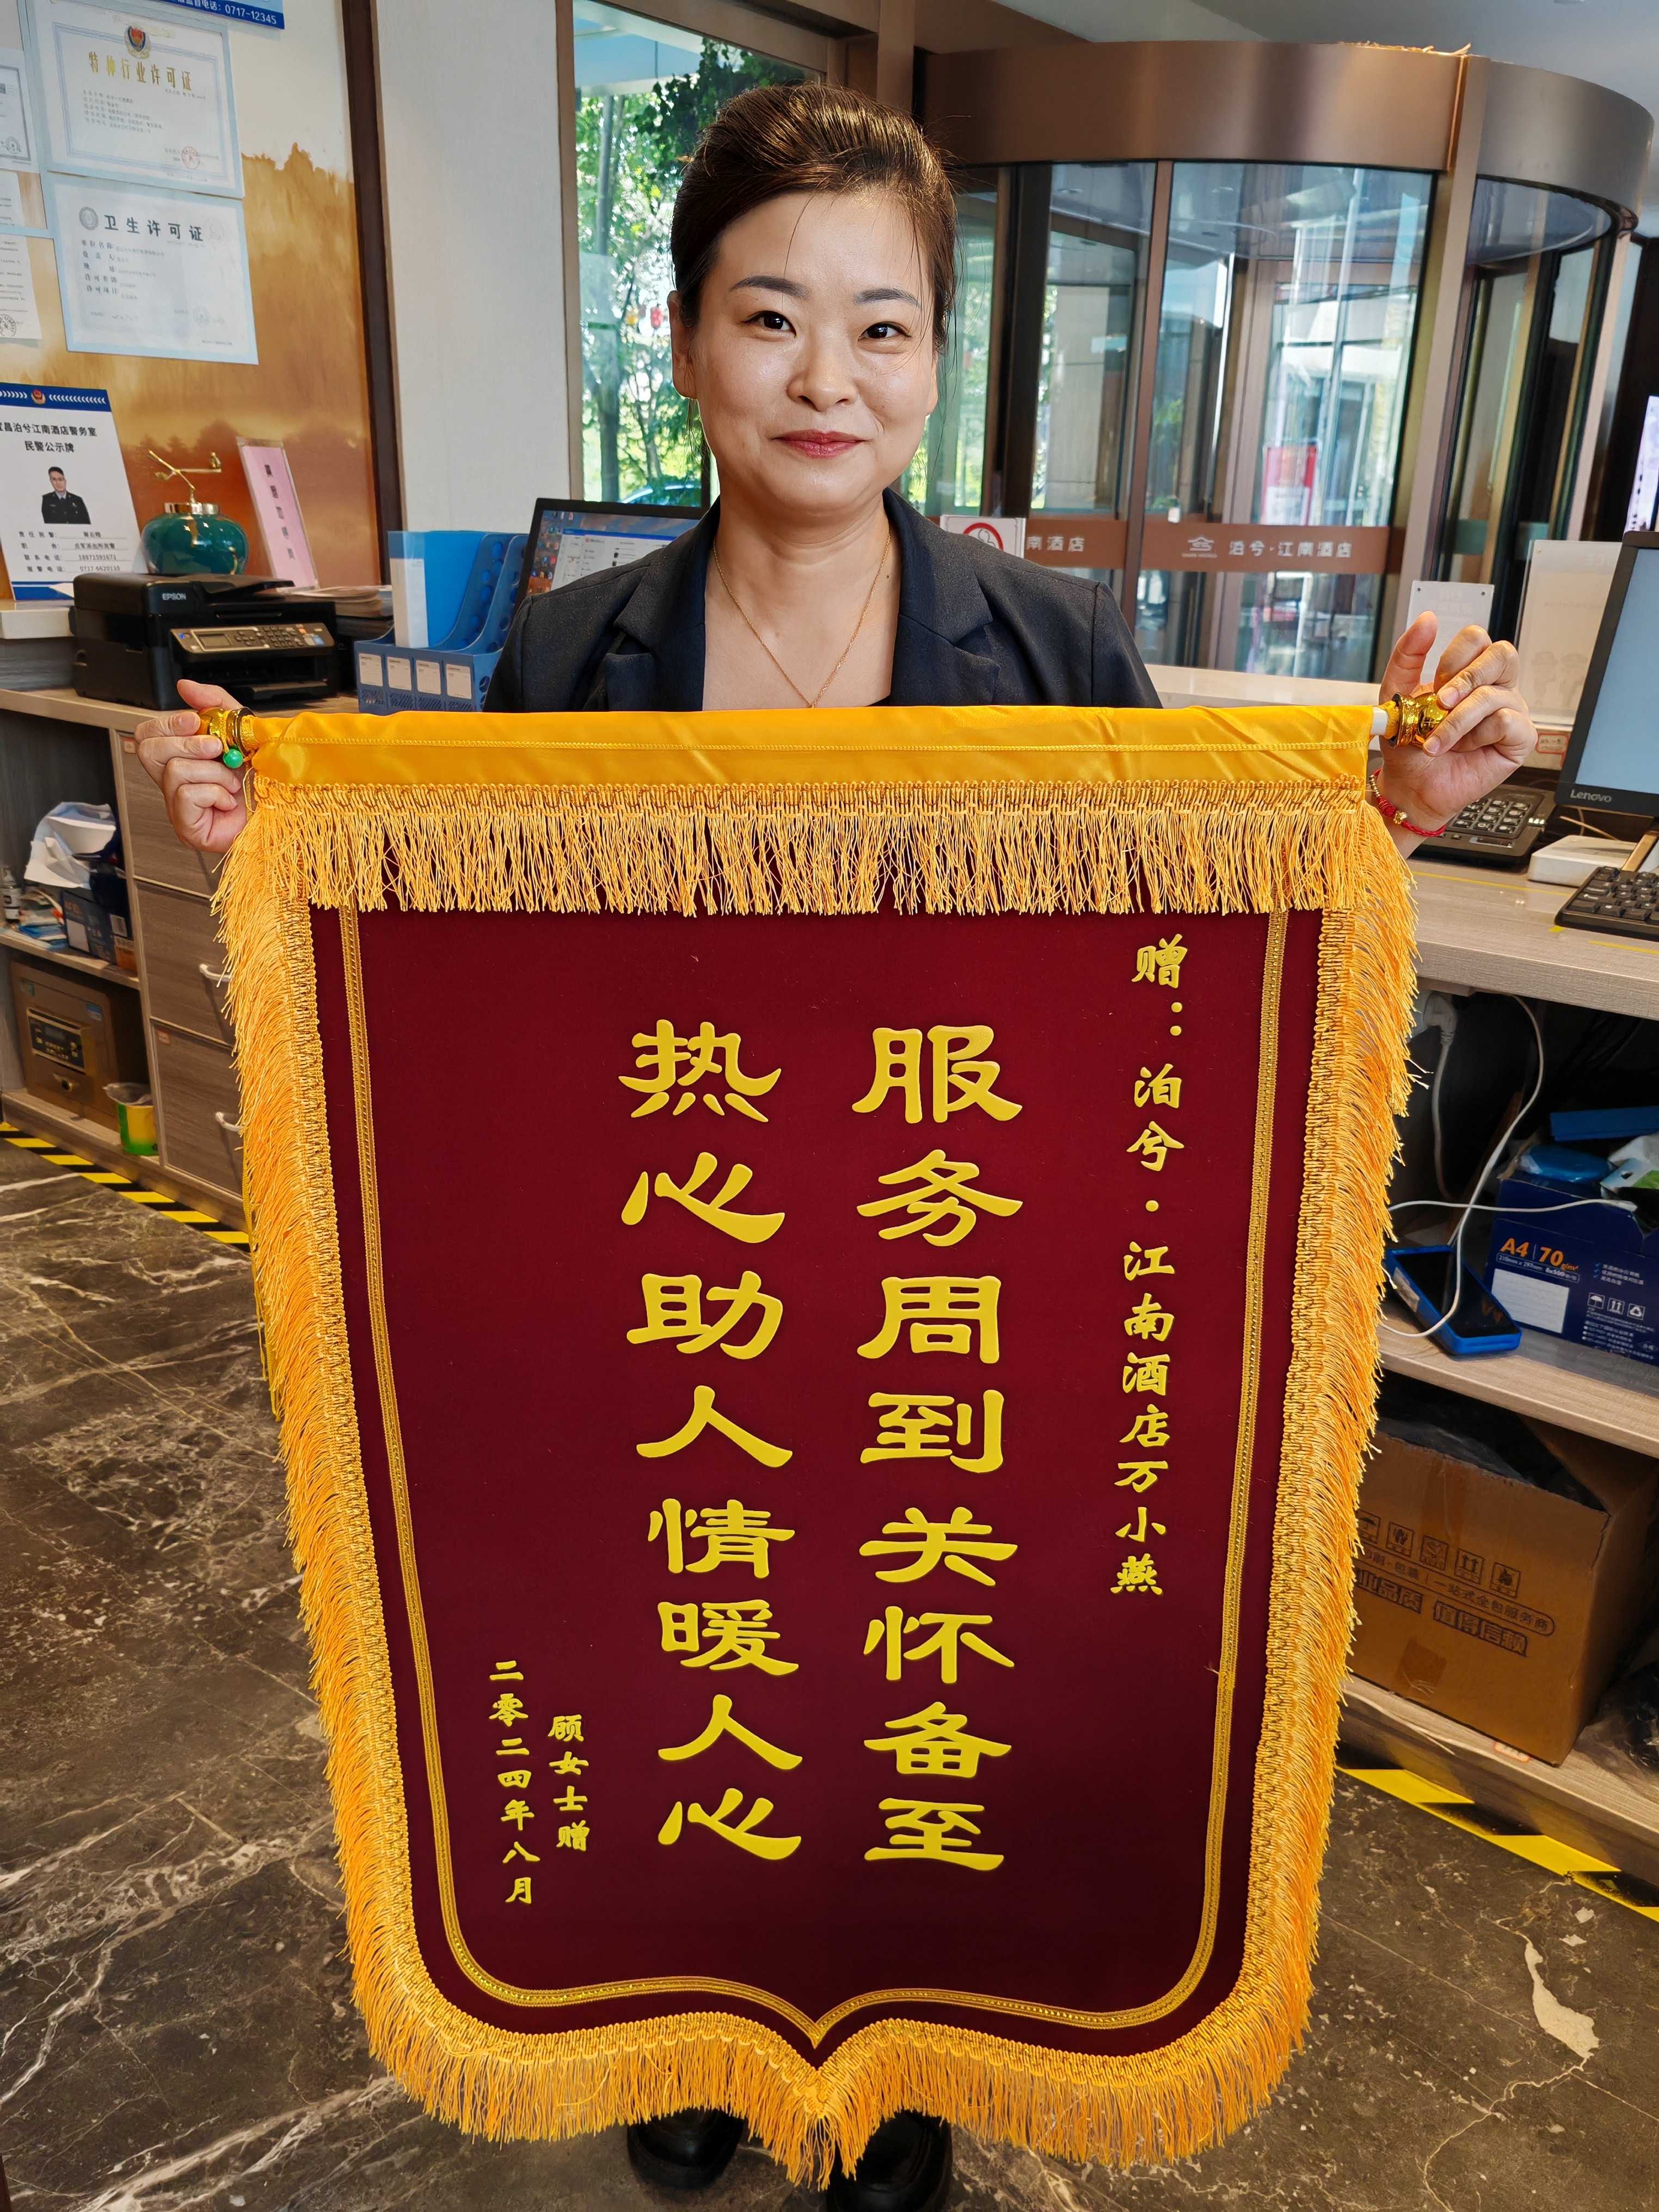 赠：泊兮·江南酒店万小燕
服务周到关怀备至
热心助人情暖人心
顾女士赠
二零二四年八月
电话：0717-12345
特种行业许可证
卫生许可证
宜昌泊兮江南酒店警务室
民警公示牌
EPSON
南酒店
泊兮·江南酒店
Lenovo
A4 70